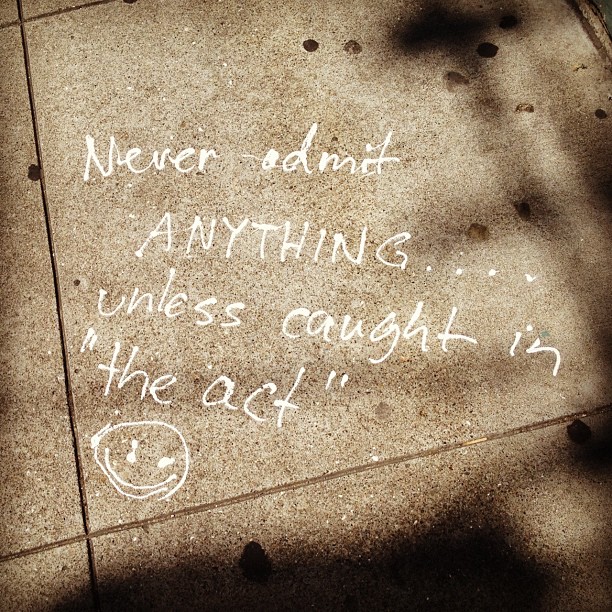 Never admit
ANYTHING.....
unless caught in
"the act"